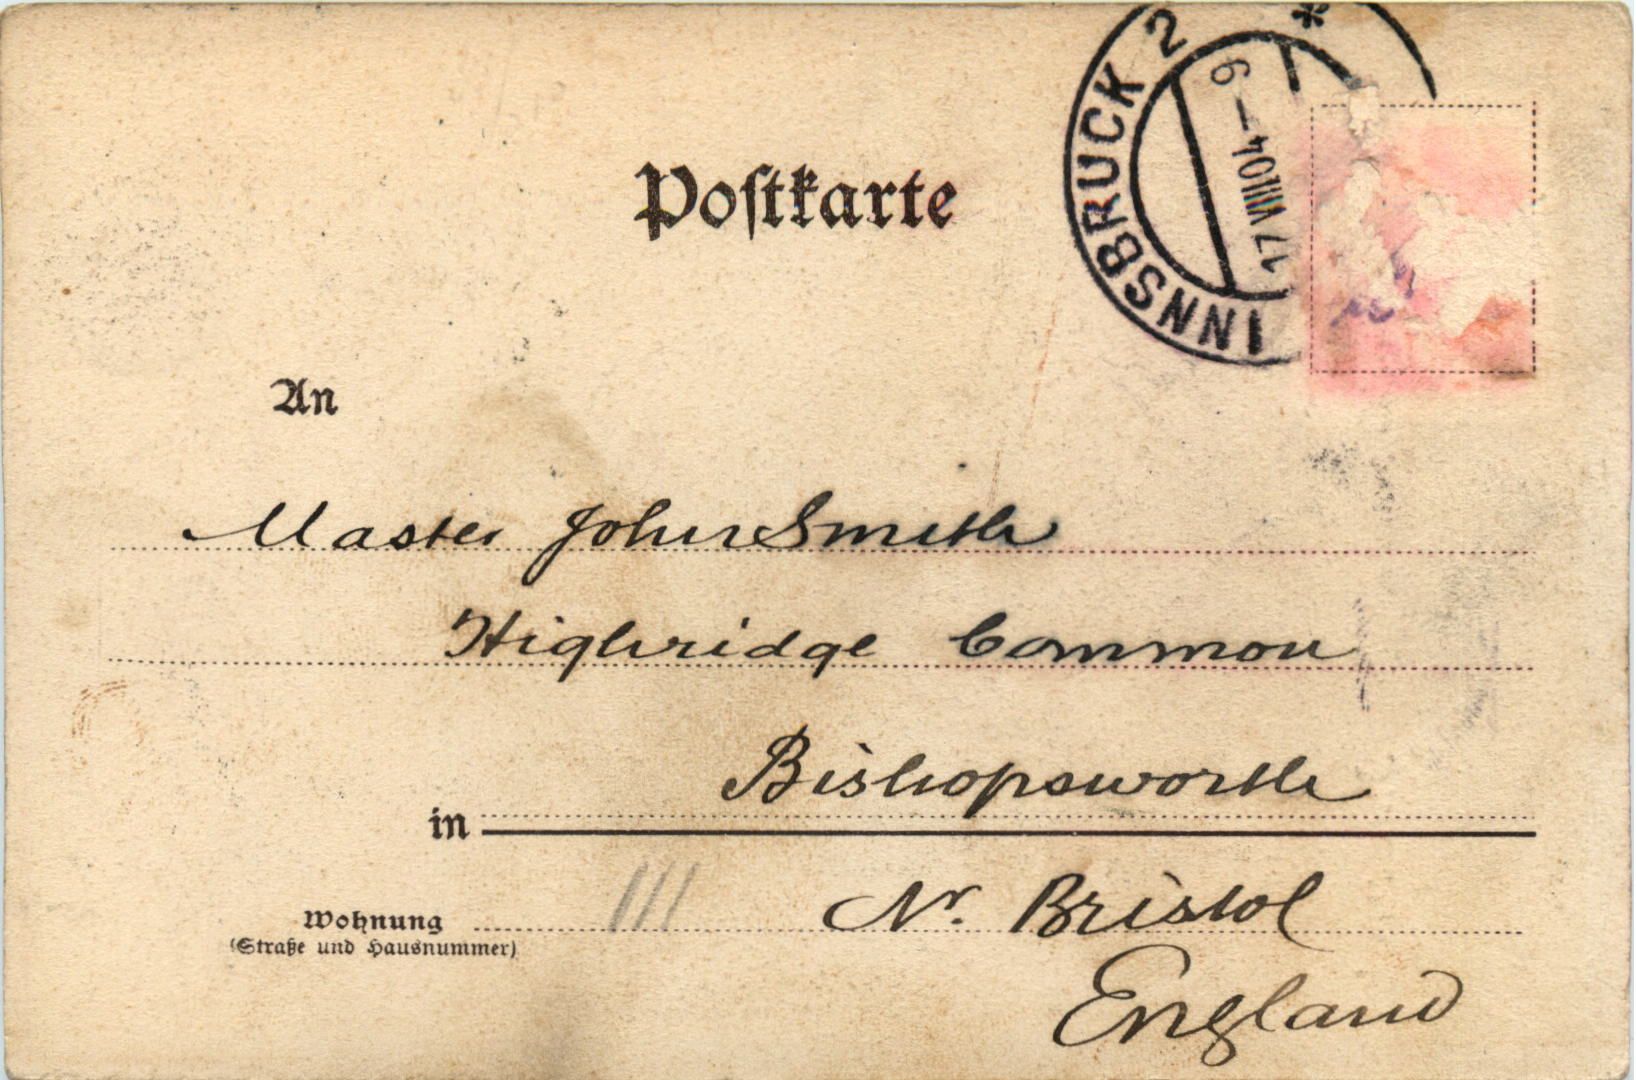 Postkarte
INNSBRUCK 2 *
17 VIII 04 – 9
An
Master John Smith
Highridge Common
Bishopsworth
in
Nr. Bristol
Wohnung
(Straße und Hausnummer)
England